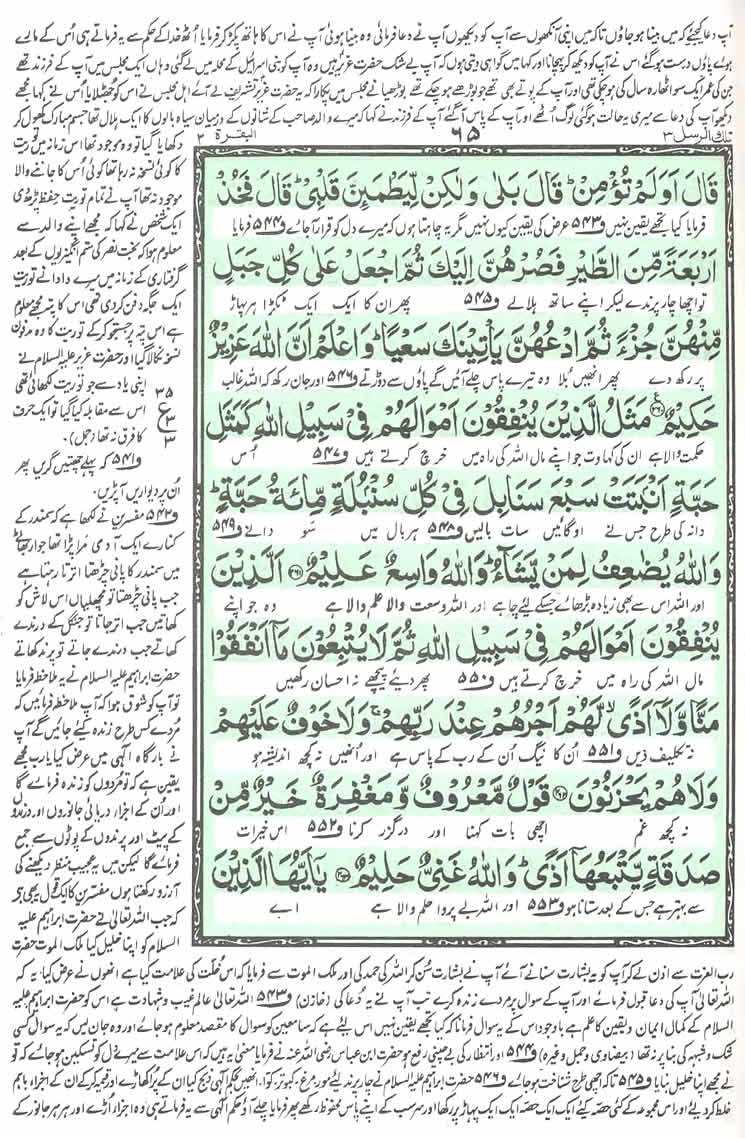 آپ دعا کیجئے کہ میں بینا ہو جاؤں تاکہ میں اپنی آنکھوں سے آپ کو دیکھوں آپ نے دعا فرمائی وہ بینا ہوئی آپ نے اس کا ہاتھ پکڑ کر فرمایا اُٹھ خدا کے حکم سے یہ فرماتے ہی اُس کے مارے
ہوئے پاؤں درست ہو گئے اس نے آپ کو دیکھ کر پہچانا اور کہا میں گواہی دیتی ہوں کہ آپ بے شک حضرت عزیر ہیں وہ آپ کو بنی اسرائیل کے محلہ میں لے گئی وہاں ایک مجلس میں آپ کے فرزند تھے
جن کی عمر ایک سو اٹھارہ سال کی ہو چکی تھی اور آپ کے پوتے بھی تھے جو بوڑھے ہو چکے تھے بوڑھیا نے مجلس میں پکارا کہ یہ حضرت عزیر تشریف لے آئے اہل مجلس نے اس کو جھٹلایا اس نے کہا مجھے
دیکھو آپ کی دعا سے میری یہ حالت ہو گئی لوگ اُٹھے اور آپ کے پاس آئے آپ کے فرزند نے کہا کہ میرے والد صاحب کے شانوں کے درمیان سیاہ بالوں کا ایک ہلال تھا جسم مبارک کھول کر
تلك الرسل ۳
۶۵
البقرة ۲
قَالَ اَوَلَمْ تُؤْمِنْ ؕ قَالَ بَلٰى وَلٰكِنْ لِّيَطْمَئِنَّ قَلْبِيْ ؕ قَالَ فَخُذْ
فرمایا کیا تجھے یقین نہیں ف۵۴۳ عرض کی یقین کیوں نہیں مگر یہ چاہتا ہوں کہ میرے دل کو قرار آجائے ف۵۴۴ فرمایا
اَرْبَعَةً مِّنَ الطَّيْرِ فَصُرْهُنَّ اِلَيْكَ ثُمَّ اجْعَلْ عَلٰى كُلِّ جَبَلٍ
تو اچھا چار پرندے لیکر اپنے ساتھ ہلالے ف۵۴۵ پھر ان کا ایک ایک ٹکڑا ہر پہاڑ
مِّنْهُنَّ جُزْءًا ثُمَّ ادْعُهُنَّ يَاْتِيْنَكَ سَعْيًا ؕ وَاعْلَمْ اَنَّ اللّٰهَ عَزِيْزٌ
پر رکھ دے پھر انھیں بلا وہ تیرے پاس چلے آئیں گے پاؤں سے دوڑتے ف۵۴۶ اور جان رکھ کہ اللہ غالب
حَكِيْمٌ ۲۶۰ مَثَلُ الَّذِيْنَ يُنْفِقُوْنَ اَمْوَالَهُمْ فِيْ سَبِيْلِ اللّٰهِ كَمَثَلِ
حکمت والا ہے ان کی کہاوت جو اپنے مال اللہ کی راہ میں خرچ کرتے ہیں ف۵۴۷ اُس
حَبَّةٍ اَنْۢبَتَتْ سَبْعَ سَنَابِلَ فِيْ كُلِّ سُنْۢبُلَةٍ مِّائَةُ حَبَّةٍ ؕ
دانہ کی طرح جس نے اوگائیں سات بالیں ف۵۴۸ ہر بال میں سَو دانے ف۵۴۹
وَاللّٰهُ يُضٰعِفُ لِمَنْ يَّشَآءُ ؕ وَاللّٰهُ وَاسِعٌ عَلِيْمٌ ۲۶۱ اَلَّذِيْنَ
اور اللہ اس سے بھی زیادہ بڑھائے جسکے لیے چاہے اور اللہ وسعت والا علم والا ہے وہ جو اپنے
يُنْفِقُوْنَ اَمْوَالَهُمْ فِيْ سَبِيْلِ اللّٰهِ ثُمَّ لَا يُتْبِعُوْنَ مَاۤ اَنْفَقُوْا
مال اللہ کی راہ میں خرچ کرتے ہیں ف۵۵۰ پھر دیئے پیچھے نہ احسان رکھیں
مَنًّا وَّلَاۤ اَذًى ۙ لَّهُمْ اَجْرُهُمْ عِنْدَ رَبِّهِمْ ۚ وَلَا خَوْفٌ عَلَيْهِمْ
نہ تکلیف دیں ف۵۵۱ اُن کا نیگ اُن کے رب کے پاس ہے اور اُنھیں نہ کچھ اندیشہ ہو
وَلَا هُمْ يَحْزَنُوْنَ ۲۶۲ قَوْلٌ مَّعْرُوْفٌ وَّمَغْفِرَةٌ خَيْرٌ مِّنْ
نہ کچھ غم اچھی بات کہنا اور درگزر کرنا ف۵۵۲ اس خیرات
صَدَقَةٍ يَّتْبَعُهَاۤ اَذًى ؕ وَاللّٰهُ غَنِيٌّ حَلِيْمٌ ۲۶۳ يٰۤاَيُّهَا الَّذِيْنَ
سے بہتر ہے جس کے بعد ستانا ہو ف۵۵۳ اور اللہ بے پروا حلم والا ہے اے
دکھایا گیا تو وہ موجود تھا اس زمانہ میں توریت
کا کوئی نسخہ نہ رہا تھا کوئی اس کا جاننے والا
موجود نہ تھا آپ نے تمام توریت حفظ پڑھ دی
ایک شخص نے کہا کہ مجھے اپنے والد سے
معلوم ہوا کہ بخت نصر کی ستم انگیزیوں کے بعد
گرفتاری کے زمانہ میں میرے دادا نے توریت
ایک جگہ دفن کر دی تھی اس کا پتہ مجھے معلوم
ہے اس پتہ پر جستجو کر کے توریت کا وہ مدفون
نسخہ نکالا گیا اور حضرت عزیر علیہ السلام نے
اپنی یاد سے جو توریت لکھائی تھی
اس سے مقابلہ کیا گیا تو ایک حرف
کا فرق نہ تھا (جمل)۔
۳۵ ع ۳ ۳
ف۵۴۱ کہ پہلے چھتیں گریں پھر
اُن پر دیواریں آپڑیں۔
ف۵۴۲ مفسرین نے لکھا ہے کہ سمندر کے
کنارے ایک آدمی مرا پڑا تھا جوار بھاٹے
میں سمندر کا پانی چڑھتا اترتا رہتا ہے
جب پانی چڑھتا تو مچھلیاں اس لاش کو
کھاتیں جب اتر جاتا تو جنگل کے درندے
کھاتے جب درندے جاتے تو پرند کھاتے
حضرت ابراہیم علیہ السلام نے یہ ملاحظہ فرمایا
تو آپ کو شوق ہوا کہ آپ ملاحظہ فرمائیں کہ
مُردے کس طرح زندہ کیے جائیں گے آپ
نے بارگاہ الٰہی میں عرض کیا یارب مجھے
یقین ہے کہ تو مُردوں کو زندہ فرمائے گا
اور اُن کے اجزاء دریائی جانوروں اور درندوں
کے پیٹ اور پرندوں کے پوٹوں سے جمع
فرمائے گا لیکن میں یہ عجیب منظر دیکھنے کی
آرزو رکھتا ہوں مفسرین کا ایک قول یہ بھی ہے
کہ جب اللہ تعالیٰ نے حضرت ابراہیم علیہ
السلام کو اپنا خلیل کیا ملک الموت حضرت
رب العزت سے اذن لے کر آپ کو یہ بشارت سنانے آئے آپ نے بشارت سُن کر اللہ کی حمد کی اور ملک الموت سے فرمایا کہ اس خُلّت کی علامت کیا ہے انھوں نے عرض کیا یہ کہ
اللہ تعالیٰ آپ کی دعا قبول فرمائے اور آپ کے سوال پر مردے زندہ کرے تب آپ نے یہ دُعا کی (خازن) ف۵۴۳ اللہ تعالیٰ عالم غیب و شہادت ہے اس کو حضرت ابراہیم علیہ
السلام کے کمال ایمان و یقین کا علم ہے باوجود اس کے یہ سوال فرمانا کہ کیا تجھے یقین نہیں اس لیے ہے کہ سامعین کو سوال کا مقصد معلوم ہو جائے اور وہ جان لیں کہ یہ سوال کسی
شک و شبہ کی بنا پر نہ تھا (بیضاوی و جمل وغیرہ) ف۵۴۴ اور انتظار کی بے چینی رفع ہو حضرت ابن عباس رضی اللہ عنہ نے فرمایا معنٰی یہ ہیں کہ اس علامت سے میرے دل کو تسکین ہو جائے کہ تو
نے مجھے اپنا خلیل بنایا ف۵۴۵ تاکہ اچھی طرح شناخت ہو جائے ف۵۴۶ حضرت ابراہیم علیہ السلام نے چار پرند لیے مور، مرغ، کبوتر، کوا۔ انھیں بحکم الٰہی ذبح کیا ان کے پر اکھاڑے اور قیمہ کر کے ان کے اجزاء باہم
خلط کر دیئے اور اس مجموعہ کے کئی حصہ کیے ایک ایک حصہ ایک ایک پہاڑ پر رکھا اور سر سب کے اپنے پاس محفوظ رکھے پھر فرمایا چلے آؤ حکم الٰہی سے یہ فرماتے ہی وہ اجزاء اُڑے اور ہر ہر جانور کے